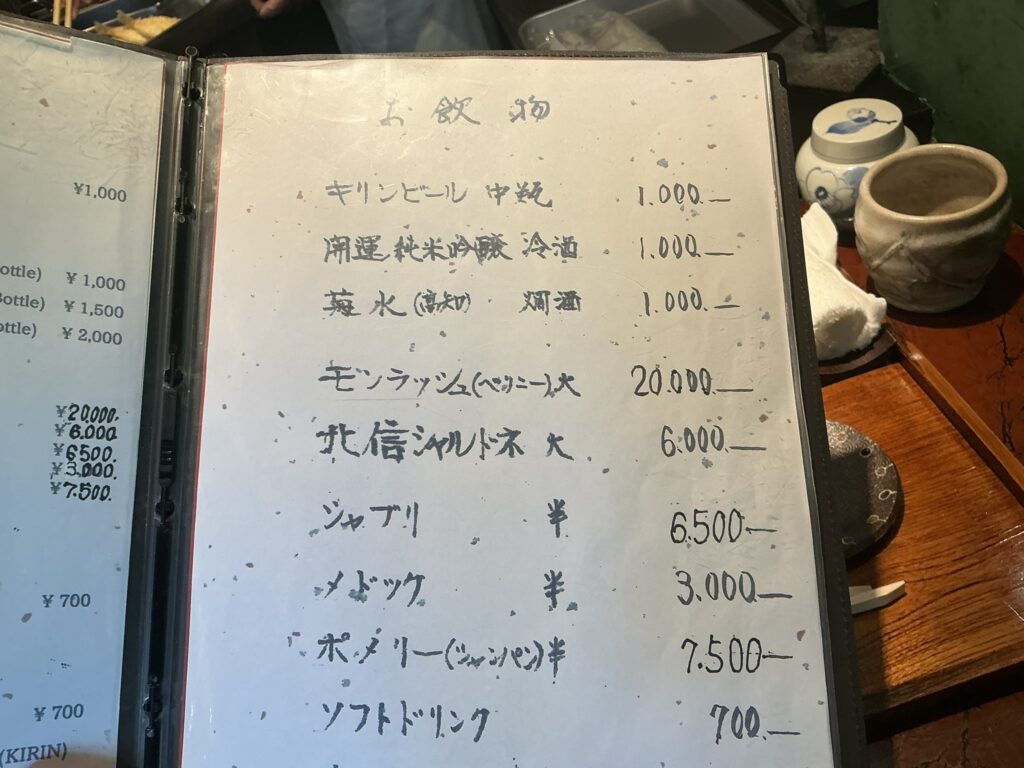 ¥1,000
ottle) ¥ 1,000
Bottle) ¥ 1,500
ottle) ¥ 2,000
¥20.000.
¥6.000
¥6500.
¥3.000.
¥7.500.
¥ 700
¥ 700
(KIRIN)
お飲物
キリンビール 中瓶 1.000.—
開運 純米吟醸 冷酒 1.000.—
水 (高知) 燗酒 1.000.—
モンラッシュ(ベリニー)大 20.000.—
北信シャルドネ 大 6.000.—
シャブリ 半 6.500—
メドック 半 3.000.—
ポメリー(シャンパン)半 7.500—
ソフトドリンク 700.—